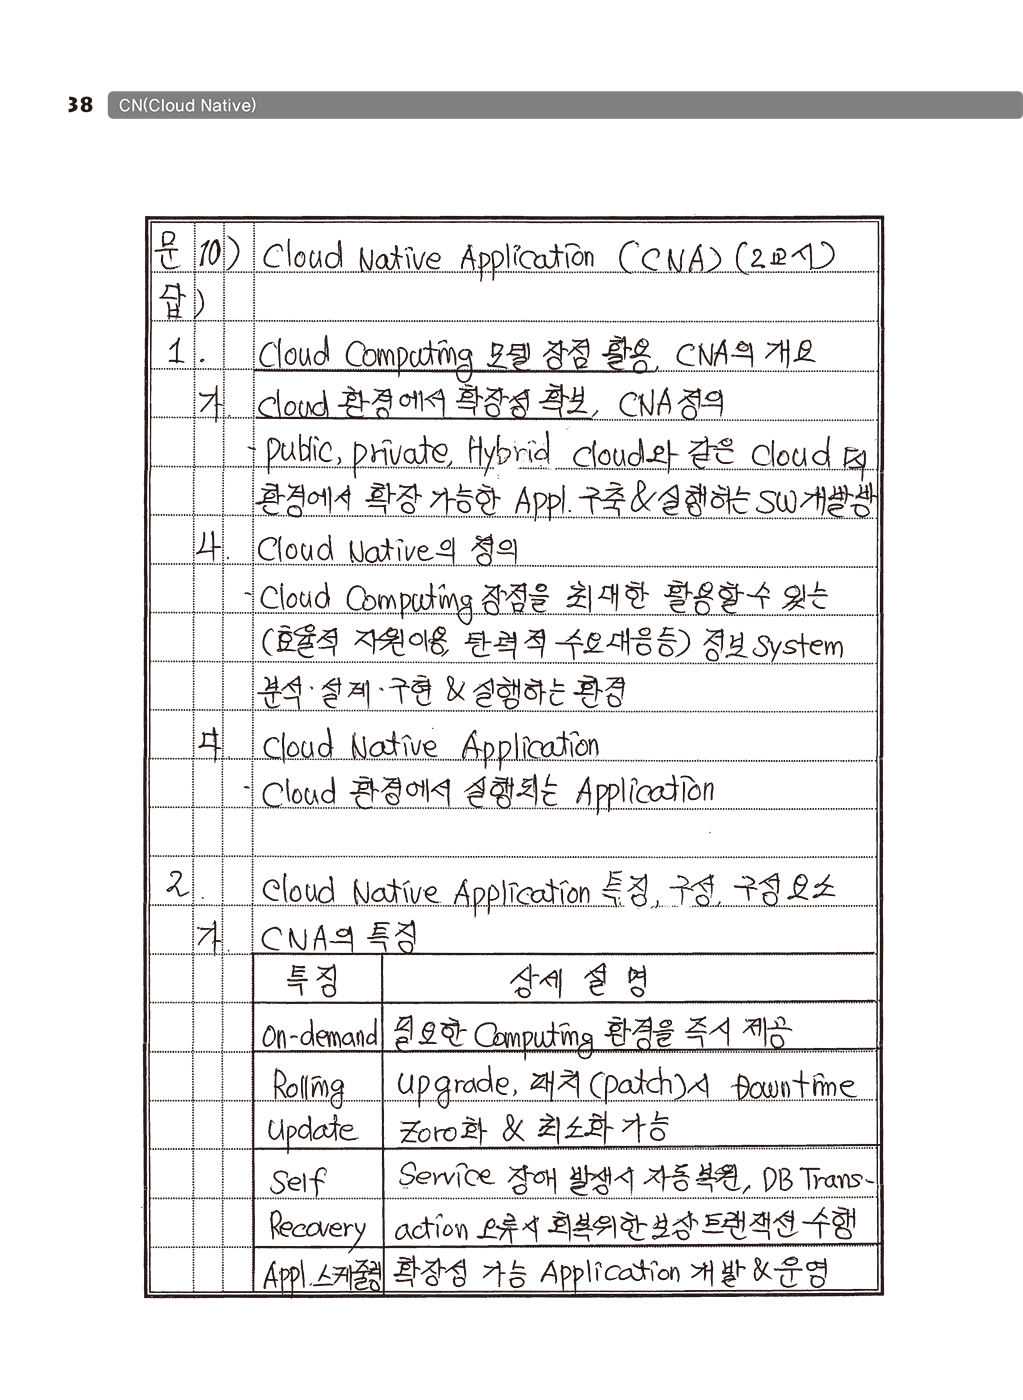 38 CN(Cloud Native)
문 10) Cloud Native Application (CNA) (2교시)
답)
1. Cloud Computing 모델 장점 활용, CNA의 개요
가. Cloud 환경에서 확장성 확보, CNA 정의
- public, private, Hybrid Cloud와 같은 Cloud 적
환경에서 확장 가능한 Appl. 구축&실행하는 SW개발방
나. Cloud Native의 정의
- Cloud Computing 장점을 최대한 활용할 수 있는
(효율적 자원이용, 탄력적 수요대응등) 정보 System
분석·설계·구현 & 실행하는 환경
다. Cloud Native Application
- Cloud 환경에서 실행되는 Application
2. Cloud Native Application 특징, 구성, 구성요소
가. CNA의 특징
특징 상세 설명
On-demand 필요한 Computing 환경을 즉시 제공
Rolling upgrade, 패치(patch)시 Downtime
update Zoro화 & 최소화 가능
Self Service 장애 발생시 자동복원, DB Trans-
Recovery action 오류시 회복위한 보상트랜잭션 수행
Appl.스케줄링 확장성 가능 Application 개발&운영